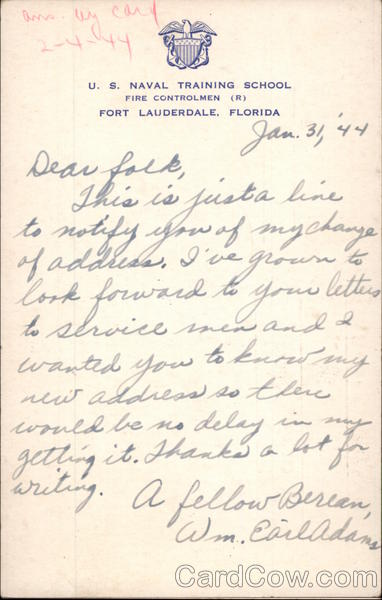 ans. by card
2-4-44
U. S. NAVAL TRAINING SCHOOL
FIRE CONTROLMEN (R)
FORT LAUDERDALE, FLORIDA
Jan. 31, '44
Dear folk,
This is just a line
to notify you of my change
of address. I've grown to
look forward to your letters
to service men and I
wanted you to know my
new address so there
would be no delay in my
getting it. Thanks a lot for
writing.
A fellow Berean,
Wm. Earl Adams
CardCow.com